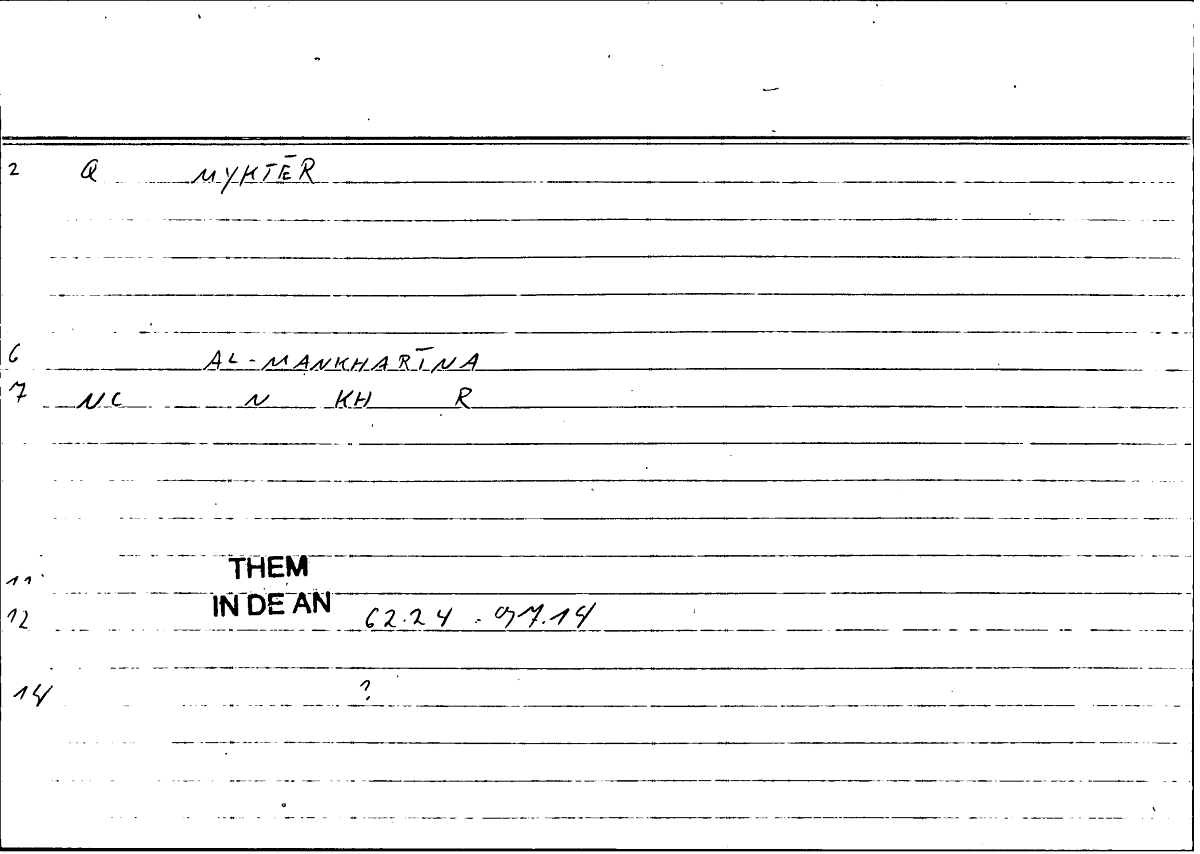 2 Q MYKTĒR
6 AL-MANKHARĪNA
7 NC N KH R
11 THEM
12 IN DE AN 62.24 - 97.14
14 ?